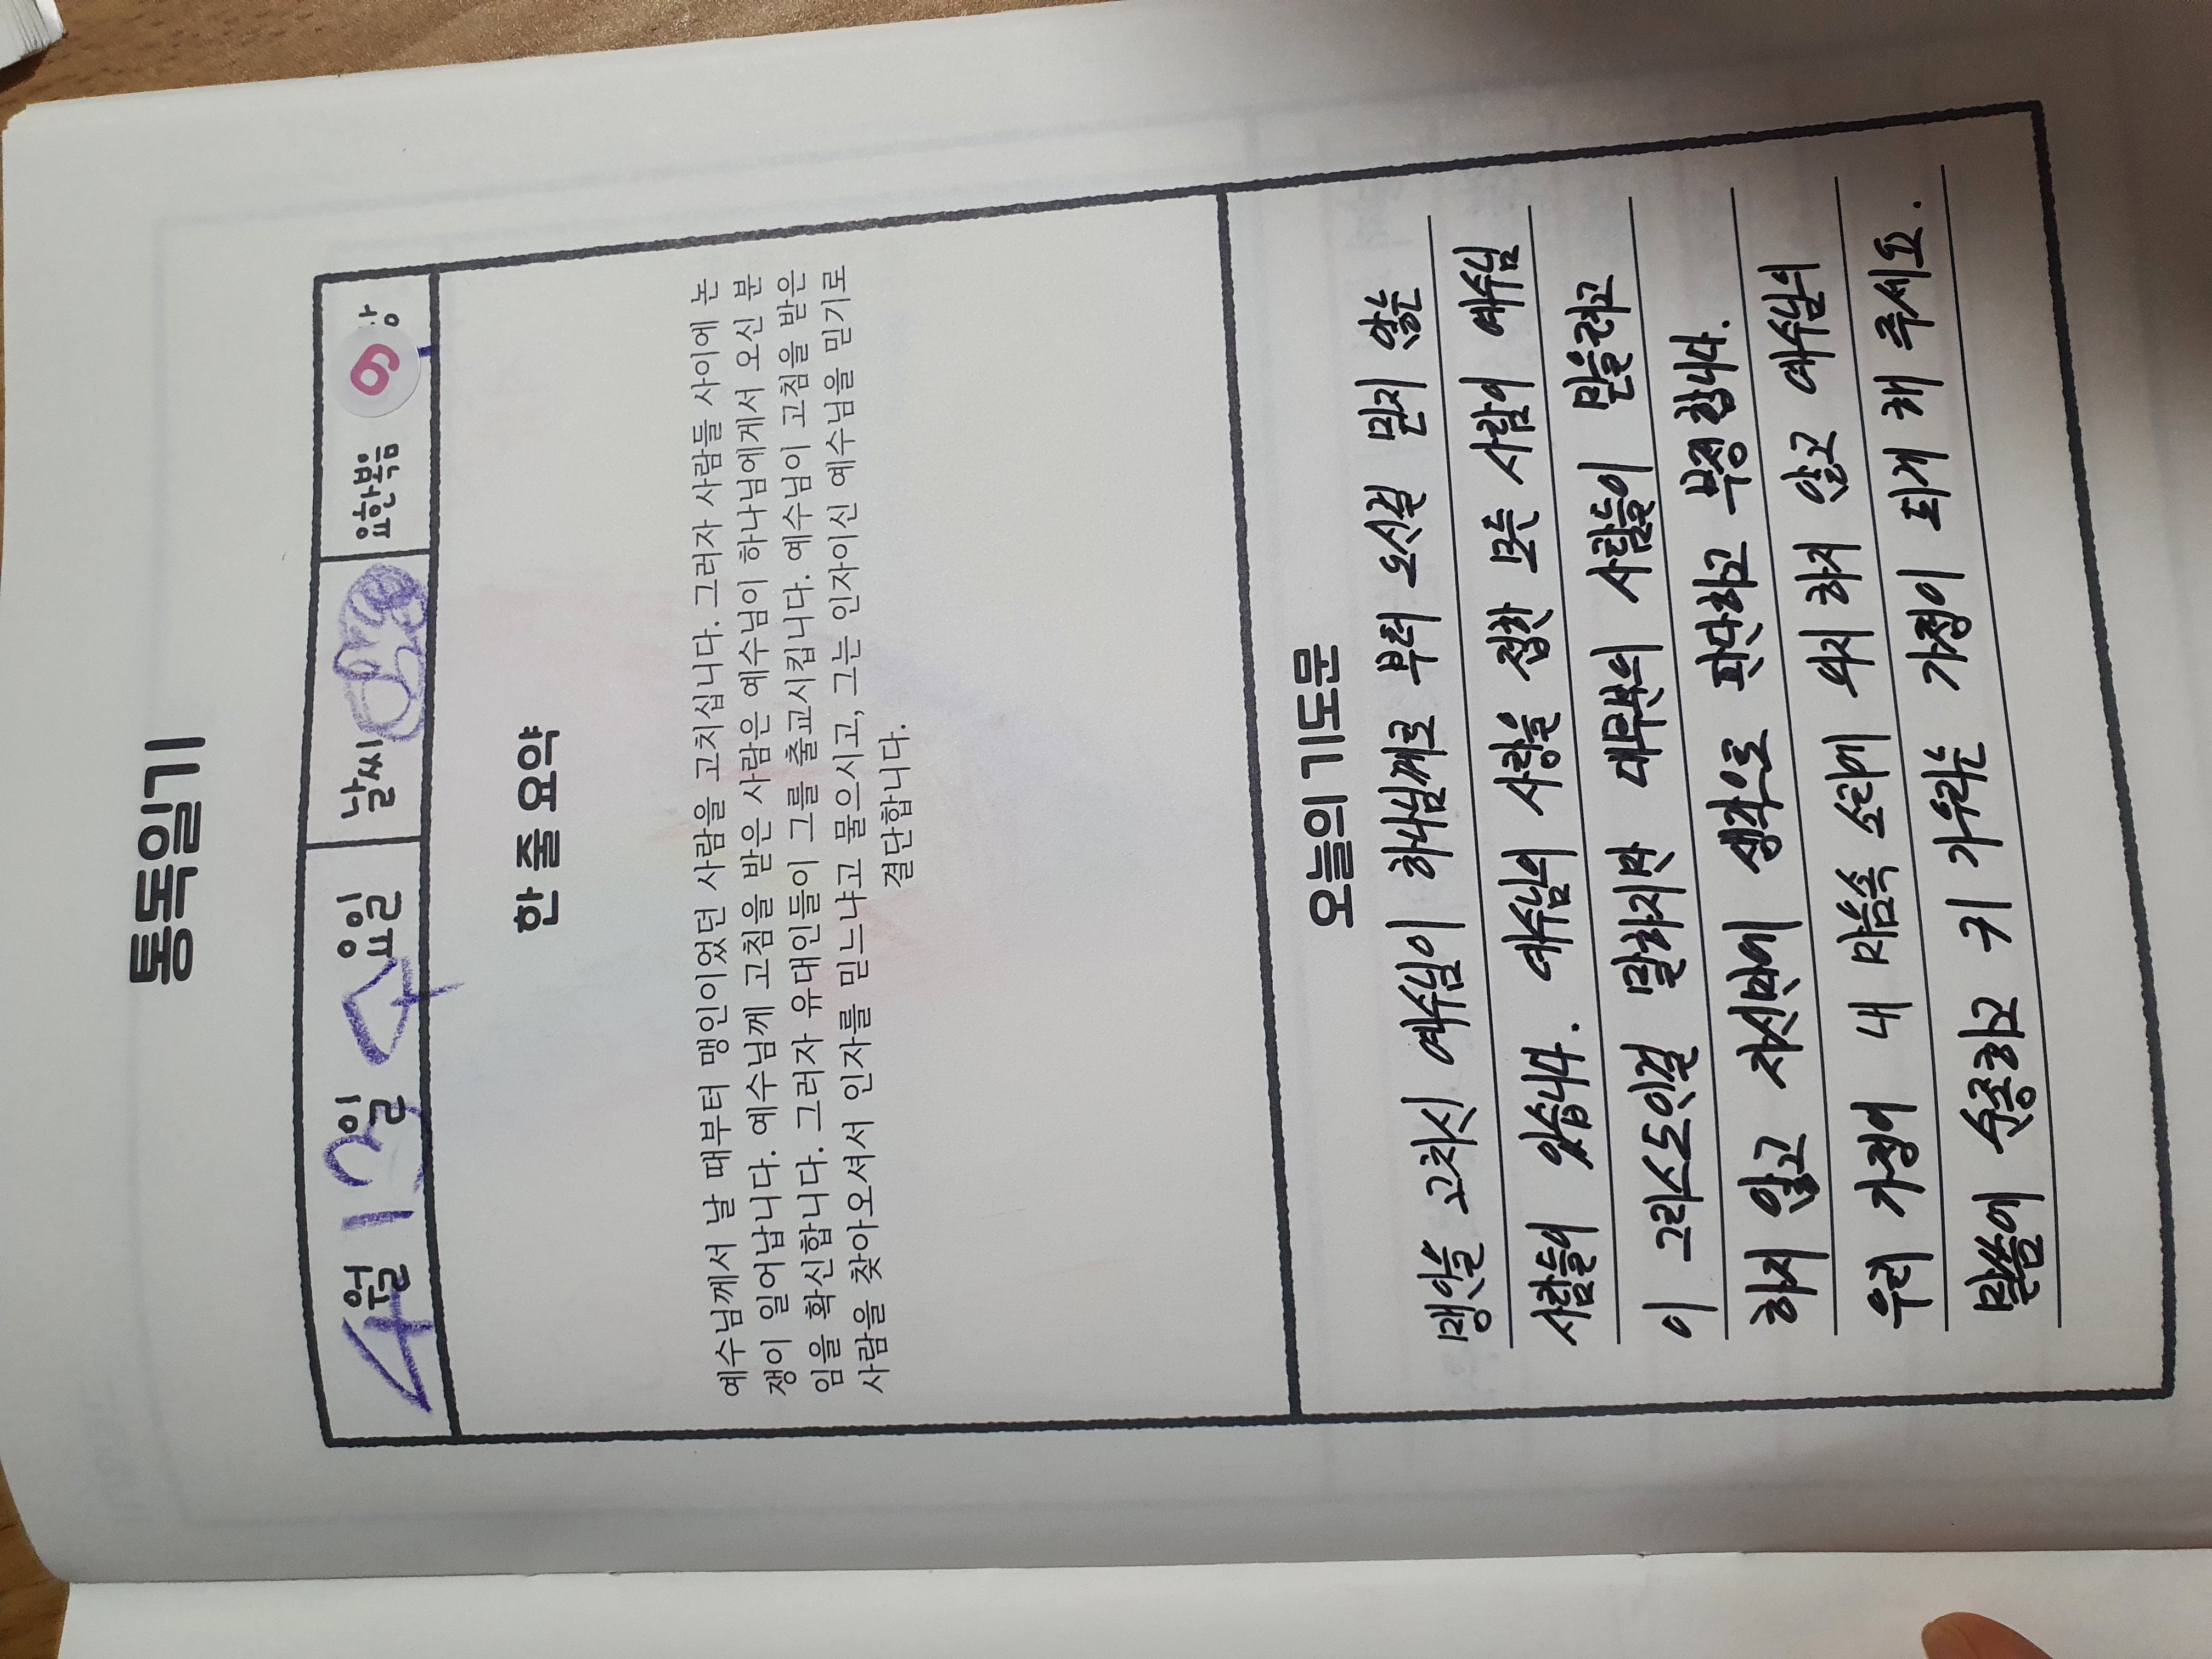 통독일기
4월 13일 수요일 날씨 요한복음 9장
한 줄 요약
예수님께서 날 때부터 맹인이었던 사람을 고치십니다. 그러자 사람들 사이에 논
쟁이 일어납니다. 예수님께 고침을 받은 사람은 예수님이 하나님에게서 오신 분
임을 확신합니다. 그러자 유대인들이 그를 출교시킵니다. 예수님이 고침을 받은
사람을 찾아오셔서 인자를 믿느냐고 물으시고, 그는 인자이신 예수님을 믿기로
결단합니다.
오늘의 기도문
맹인을 고치신 예수님이 하나님께로 부터 오신걸 믿지 않는
사람들이 있습니다. 예수님의 사랑을 접한 모든 사람이 예수님
이 그리스도인걸 말하지만 대부분의 사람들이 믿을려고
하지 않고 자신만에 생각으로 판단하고 부정합니다.
우리 가정이 내 마음속 소리에 의지 하지 않고 예수님의
말씀에 순종하고 귀 기우리는 가정이 되게 해 주세요.